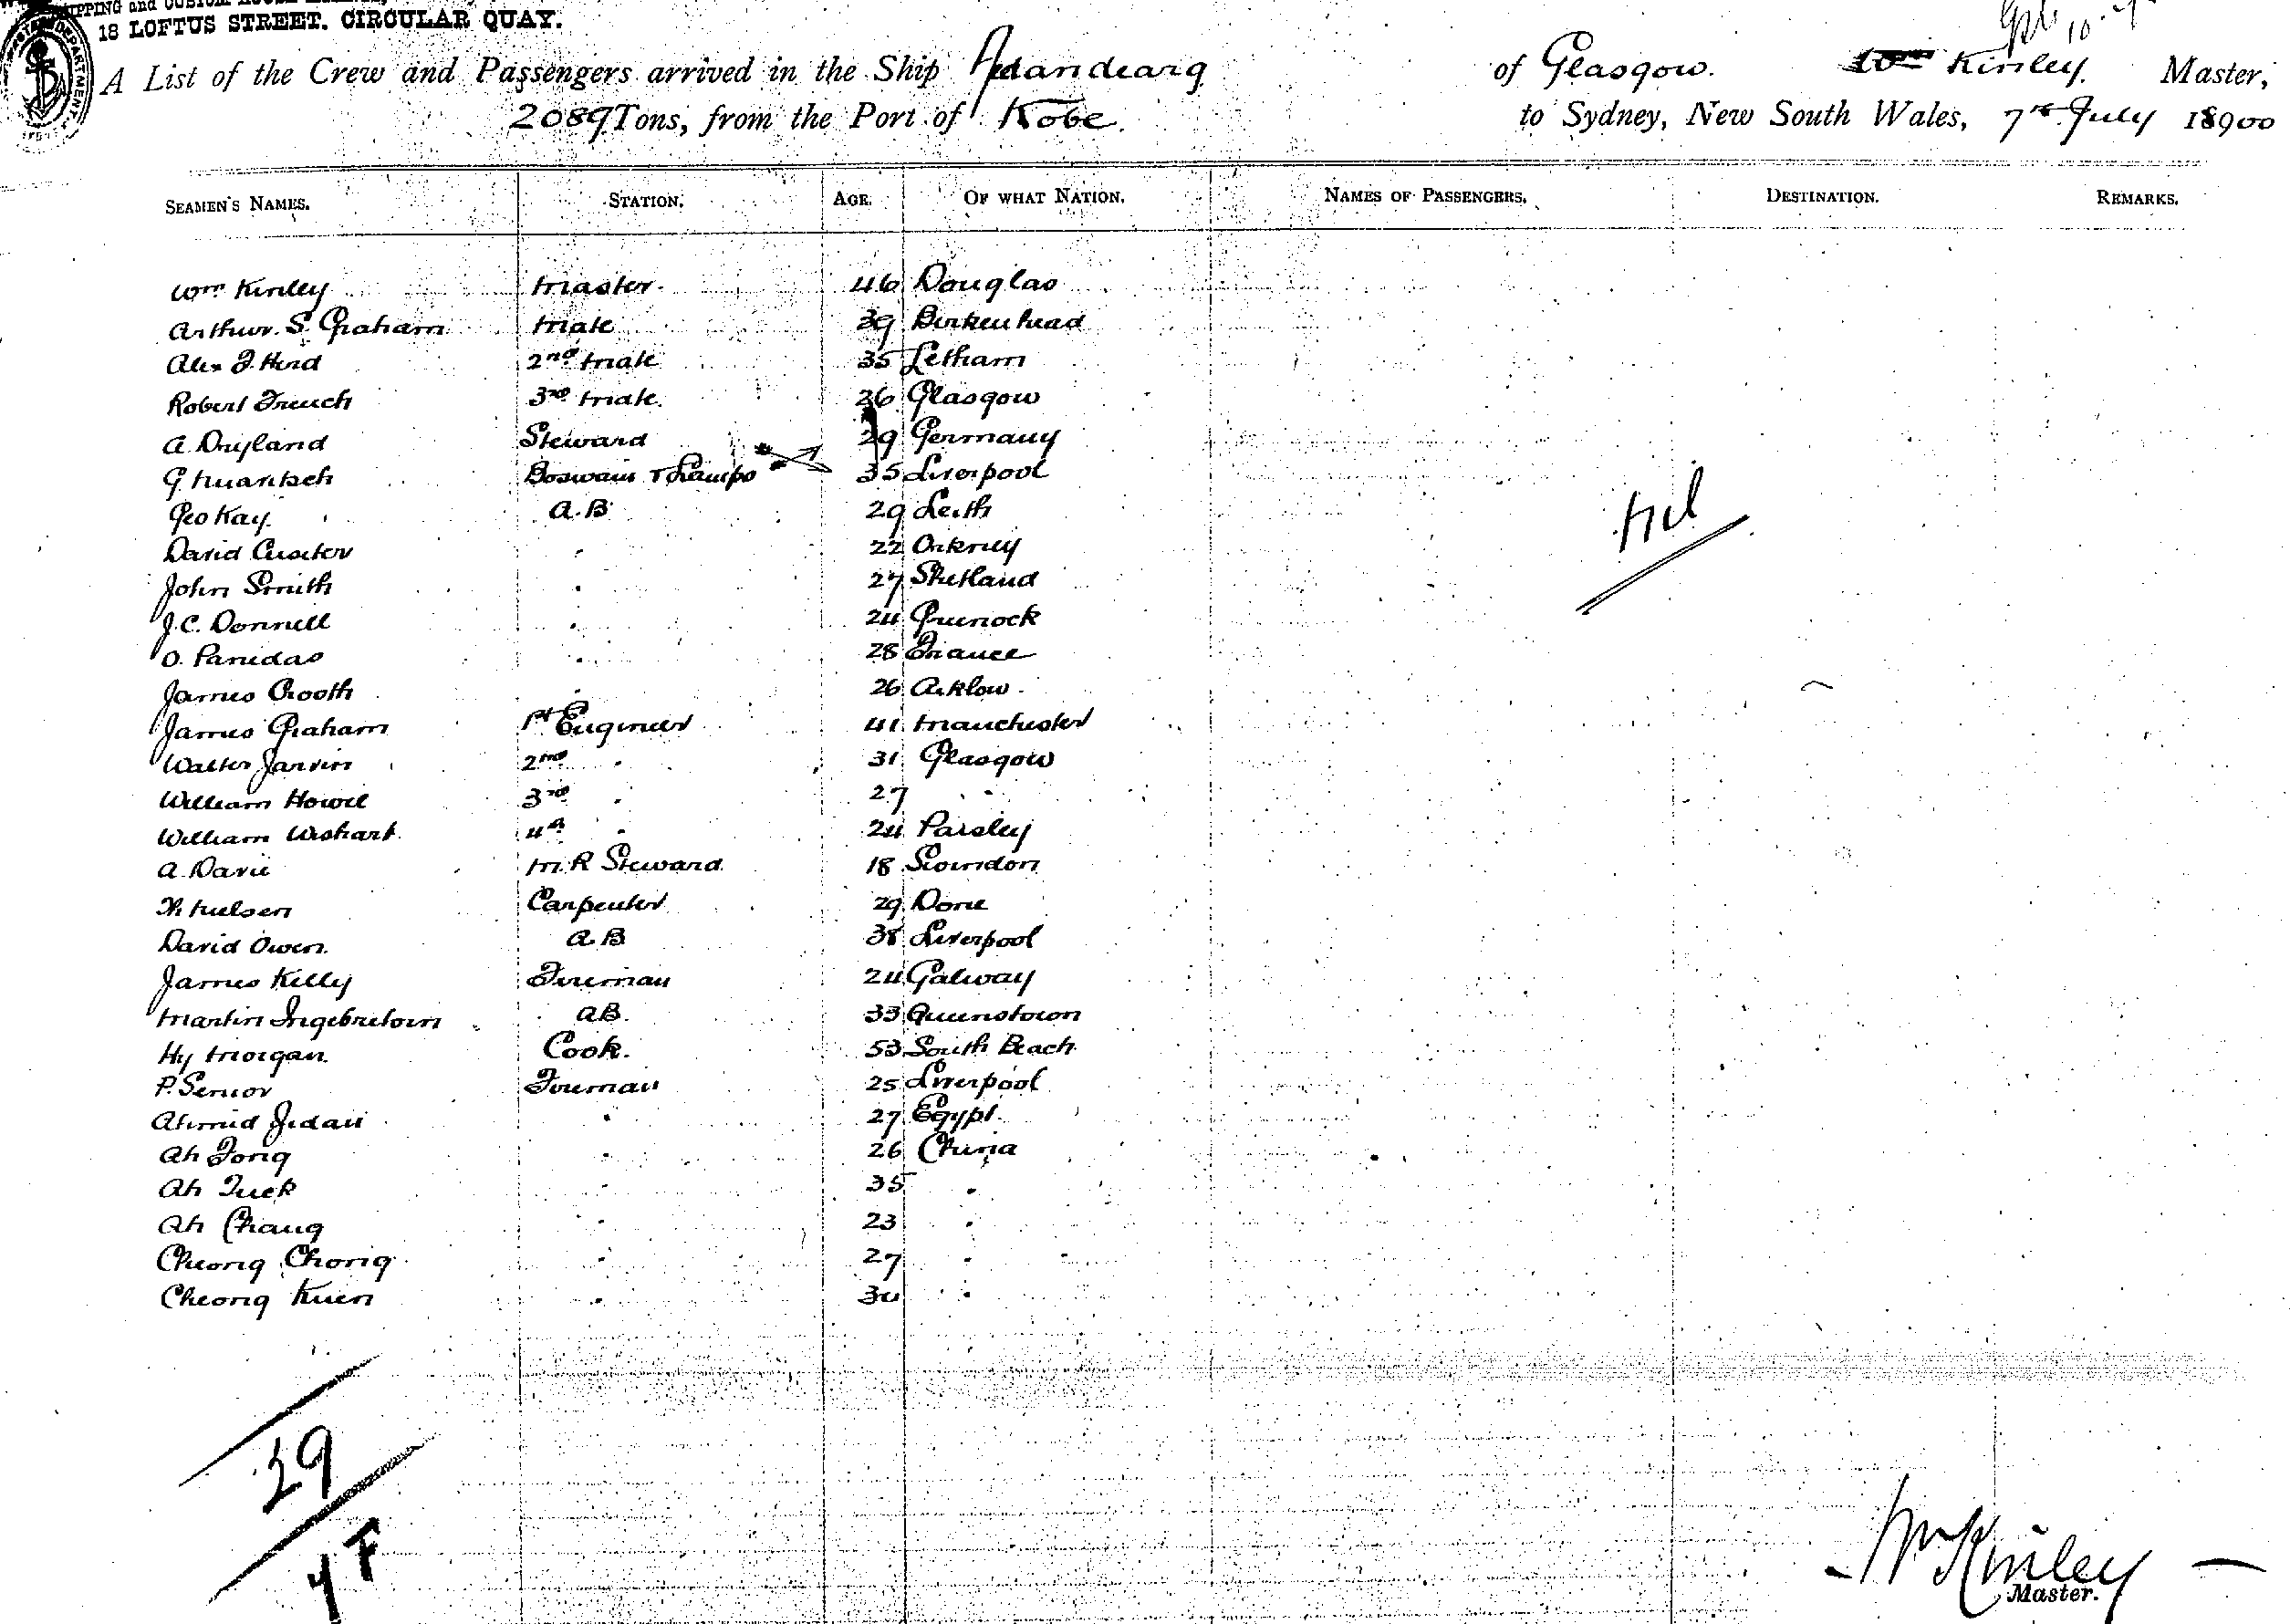 SHIPPING and CUSTOM HOUSE
18 LOFTUS STREET. CIRCULAR QUAY.
A List of the Crew and Passengers arrived in the Ship of Glasgow. Wm Kinley. Master,
2089 Tons, from the Port of Kobe. to Sydney, New South Wales, 7th July 18900
SEAMEN'S NAMES. STATION. AGE. OF WHAT NATION. NAMES OF PASSENGERS. DESTINATION. REMARKS.
Wm Kinley Master. 46 Douglas
Arthur. S. Graham Mate 39 Birkenhead
Alex J. Herd 2nd Mate 35 Letham
Robert French 3rd Mate. 26 Glasgow
A. Dryland Steward 29 Germany
G. Boswain & Lamps 35 Liverpool
Geo Kay. A.B 29 Leith
David Cusiter " 22 Orkney
John Smith " 27 Shetland
J.C. Donnell " 24 Greenock
O. Panidas " 28 France
James Crooth " 26 Arklow.
James Graham 1st Engineer 41 Manchester
Walter Jarvin 2nd " 31 Glasgow
William Howie 3rd " 27 " "
William Wishart. 4th " 24 Paisley
A. Davie M.R Steward 18 Swindon
Nielsen Carpenter 29 Done
David Owen. A.B 38 Liverpool
James Kelly Fireman 24 Galway
Martin AB. 33 Queenstown
Hy Morgan. Cook. 53 South Beach
P. Senior Fireman 25 Liverpool
Ahmid Jidau " 27 Egypt.
Ah Fong " 26 China
Ah Tuck " 35 "
Ah Chang " 23 "
Cheong Chong " 27 "
Cheong Kuen " 34 "
Nil
29
Wm Kinley
Master.